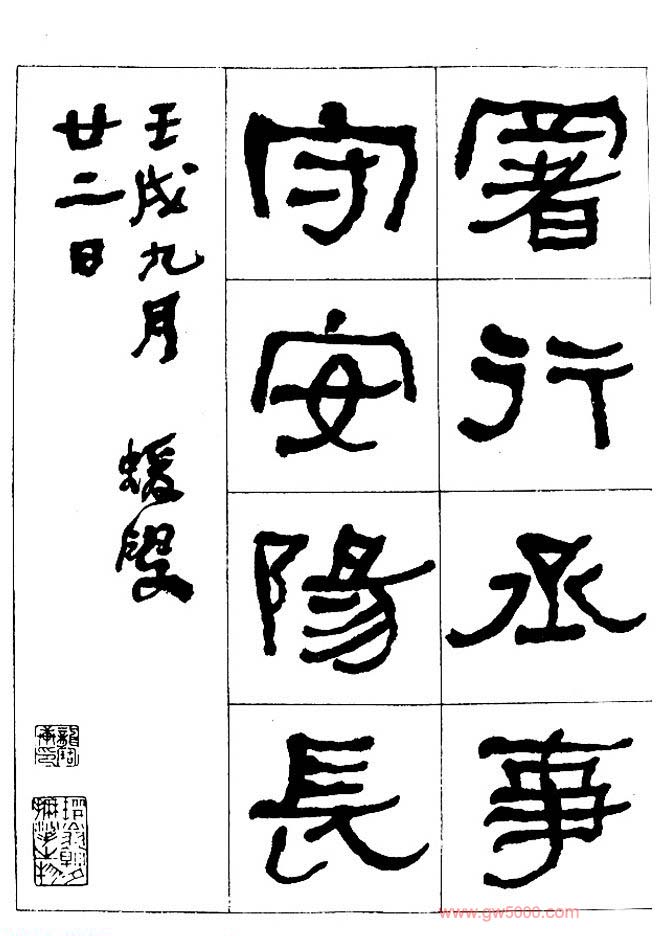 署行丞事
守安陽長
壬戌九月 蝯叟
廿二日
www.gw5000.com